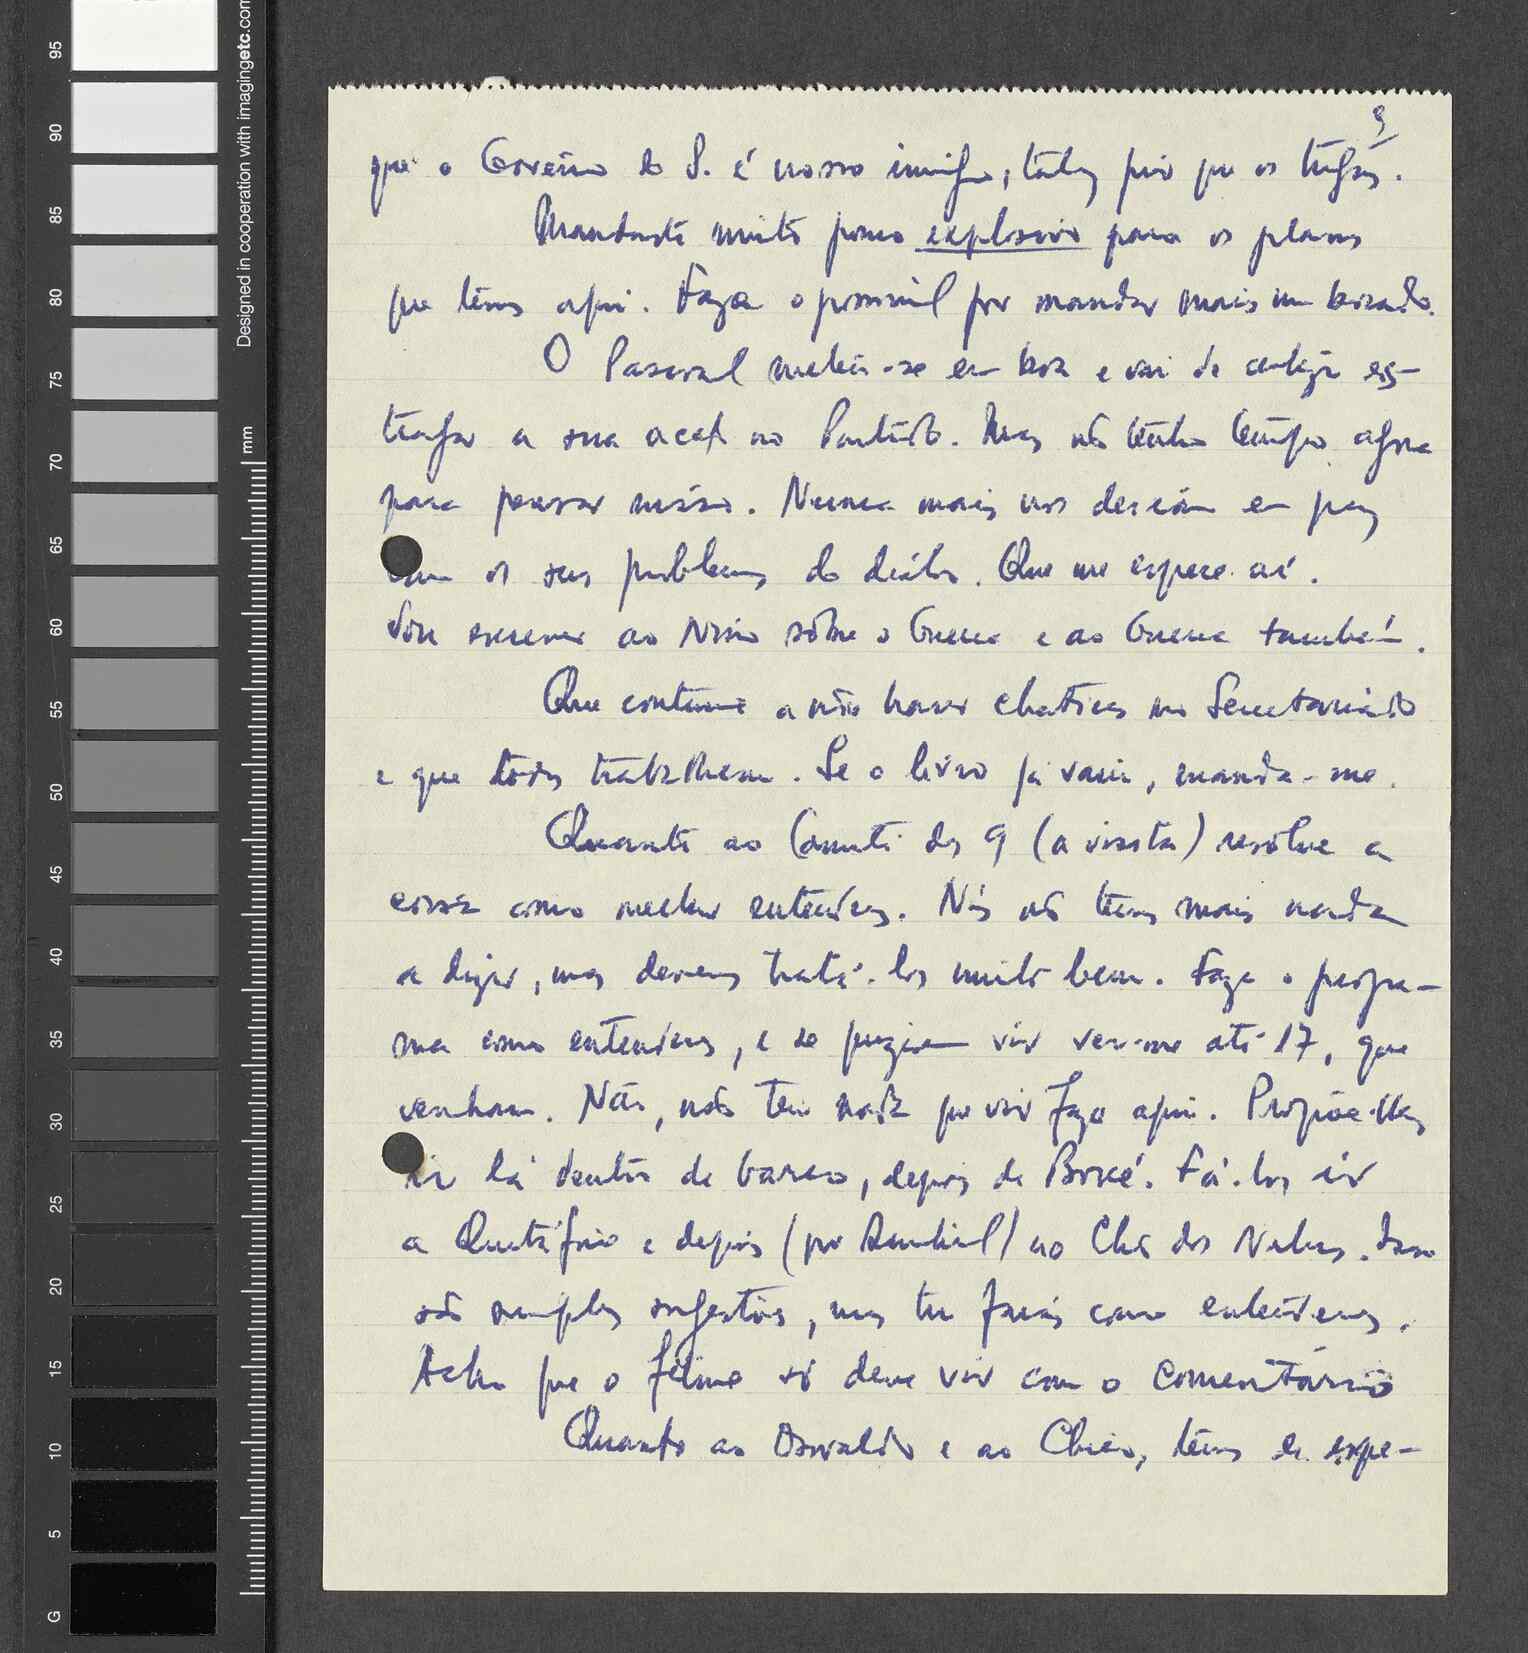 95
90
85
80
75
70
65
60
55
50
45
40
35
30
25
20
15
10
5
G
Designed in cooperation with imagingetc.com
mm
9
que o Govêrno do S. é nosso inimigo, talvez pior que os tugas.
Mandaste muito pouco explosivo para os planos
que temos aqui. Faz o possível por mandar mais um bocado.
O Pascoal meteu-se em boa e vai de certeza es-
tragar a sua acção no Partido. Mas não tenho tempo agora
para pensar nisso. Nunca mais nos deixam em paz
com os seus problemas do diabo. Que me espere aí.
Vou escrever ao Nino sôbre o Guerra e ao Guerra também.
Que continue a não haver chatices no Secretariado
e que todos trabalhem. Se o livro já saiu, manda-me.
Quanto ao Comité dos 9 (a visita) resolve a
coisa como melhor entenderes. Nós não temos mais nada
a dizer, mas devemos tratá-los muito bem. Faz o progra-
ma como entenderes, e se puderem vir ver-me até 17, que
venham. Não, não tem nada que vir fazer aqui. Propõe-lhes
ir lá dentro de barco, depois de Boké. Fá-los ir
a Quitáfine e depois (por Kandiafara) ao Che dos
são simples sugestões, mas tu farás como entenderes.
Acho que o filme só deve vir com o comentário
Quanto ao Osvaldo e ao Chico, temos de espe-